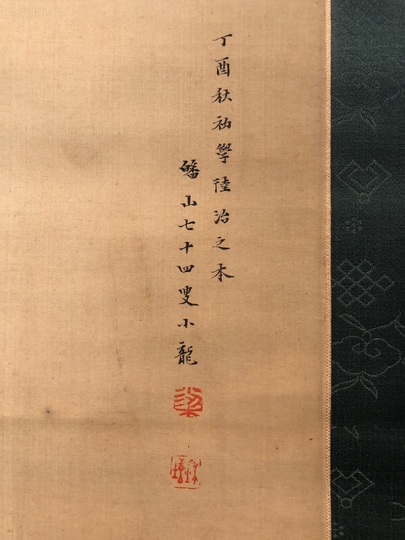 丁酉秋初學陸治之本
鱕山七十四叟小龍